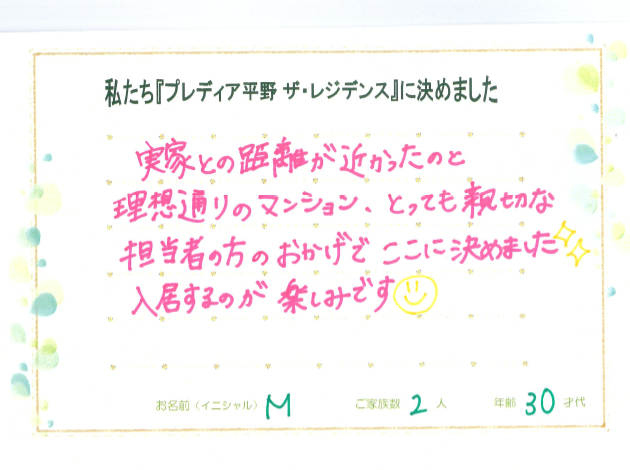 私たち『プレディア平野 ザ・レジデンス』に決めました
実家との距離が近かったのと
理想通りのマンション、とっても親切な
担当者の方のおかげで ここに決めました
入居するのが 楽しみです
お名前（イニシャル） M ご家族数 2 人 年齢 30 才代